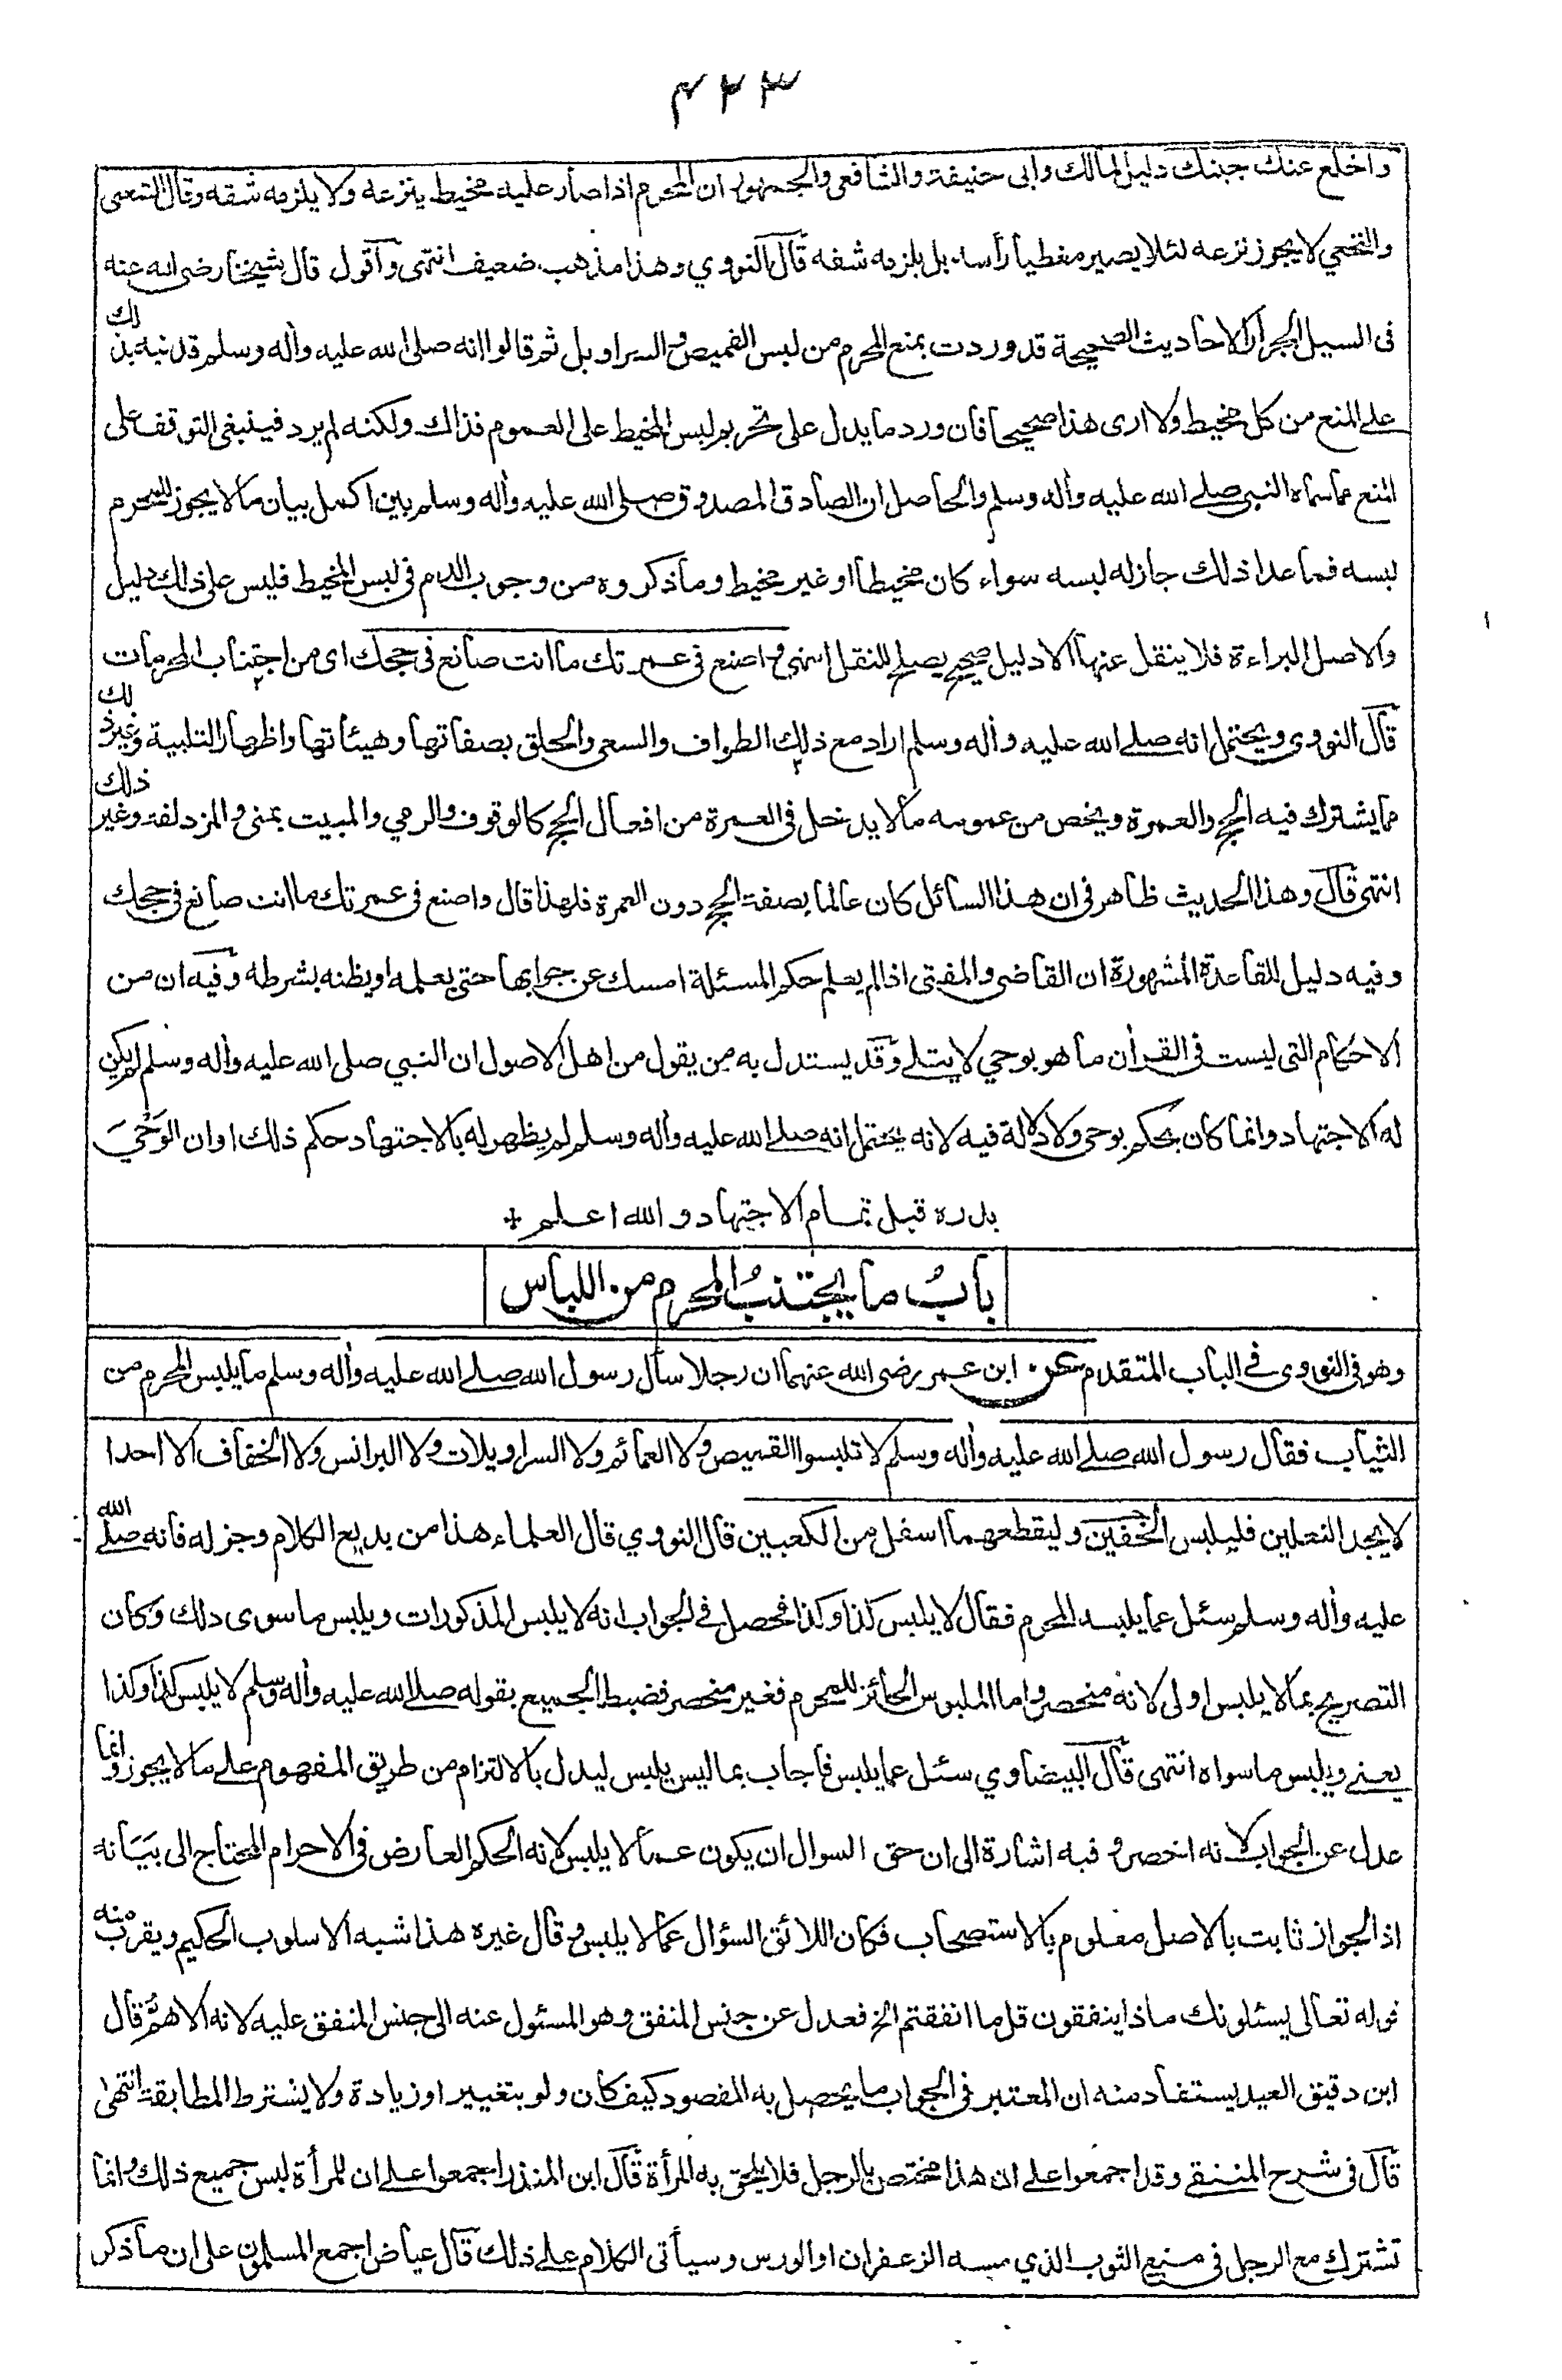 ٤٢٣
واخلع عنك جبتك دليل لمالك وابى حنيفة والشافعى والجمهور ان المحرم اذا صار عليه مخيط ينزعه ولا يلزمه شقه وقال الشعبى
والنخعي لا يجوز نزعه لئلا يصير مغطيا رأسه بل يلزمه شقه قال النووي وهذا مذهب ضعيف انتهى واقول قال شيخنا رضى الله عنه
فى السيل الجرار الاحاديث الصحيحة قد وردت بمنع المحرم من لبس القميص والسراويل ثم قالوا انه صلى الله عليه واله وسلم قد نبه بذلك
على المنع من كل مخيط ولا ارى هذا صحيحا فان ورد ما يدل على تحريم لبس المخيط على العموم فذاك ولكنه لم يرد فينبغى التوقف على
المنع مما سماه النبي صلى الله عليه واله وسلم والحاصل ان الصادق المصدوق صلى الله عليه واله وسلم بين اكمل بيان ما لا يجوز للمحرم
لبسه فما عدا ذلك جاز له لبسه سواء كان مخيطا او غير مخيط وما ذكروه من وجوب الدم فى لبس المخيط فليس على ذلك دليل
والاصل البراءة فلا ينقل عنها الا دليل صحيح يصلح للنقل انتهى واصنع فى عمرتك ما انت صانع فى حجك اى من اجتناب المحرمات
قال النووى ويحتمل انه صلى الله عليه واله وسلم اراد مع ذلك الطواف والسعى والحلق بصفاتها وهيئاتها واظهار التلبية وغير ذلك
مما يشترك فيه الحج والعمرة ويخص من عمومه ما لا يدخل فى العمرة من افعال الحج كالوقوف والرمي والمبيت بمنى والمزدلفة وغير ذلك
انتهى قال وهذا الحديث ظاهر فى ان هذا السائل كان عالما بصفة الحج دون العمرة فلهذا قال واصنع فى عمرتك ما انت صانع فى حجك
وفيه دليل للقاعدة المشهورة ان القاضى والمفتى اذا لم يعلم حكم المسئلة امسك عن جوابها حتى يعلمه او يظنه بشرطه وفيه ان من
الاحكام التى ليست فى القرأن ما هو بوحي لا يتلى وقد يستدل به من يقول من اهل الاصول ان النبي صلى الله عليه واله وسلم لم يكن
له الاجتهاد وانما كان يحكم بوحى ولا دلالة فيه لانه يحتمل انه صلى الله عليه واله وسلم لم يظهر له بالاجتهاد حكم ذلك او ان الوَحْيَ
بدره قبل تمام الاجتهاد والله اعلم +
بابُ ما يجتنبُ المحرم من اللباس
وهو فى النووى فى الباب المتقدم عن ابن عمر رضى الله عنهما ان رجلا سأل رسول الله صلى الله عليه واله وسلم ما يلبس المحرم من
الثياب فقال رسول الله صلى الله عليه واله وسلم لا تلبسوا القميص ولا العمائم ولا السراويلات ولا البرانس ولا الخفاف الا احدا
لا يجد النعلين فليلبس الخفين وليقطعهما اسفل من الكعبين قال النووي قال العلماء هذا من بديع الكلام وجزله فانه صلى الله
عليه واله وسلم سئل عما يلبسه المحرم فقال لا يلبس كذا وكذا فحصل فى الجواب انه لا يلبس المذكورات ويلبس ما سوى ذلك وكان
التصريح بما لا يلبس اولى لانه منحصر واما الملبوس الجائز للمحرم فغير منحصر فضبط الجميع بقوله صلى الله عليه واله وسلم لا يلبس كذا وكذا
يعنى ويلبس ما سواه انتهى قال البيضاوي سئل عما يلبس فاجاب بما ليس يلبس ليدل بالالتزام من طريق المفهوم على ما لا يجوز وانما
عدل عن الجواب لانه اخصر وفيه اشارة الى ان حق السوال ان يكون عما لا يلبس لانه الحكم العارض فى الاحرام المحتاج الى بيَانه
اذ الجواز ثابت بالاصل معلوم بالاستصحاب فكان اللائق السؤال عما لا يلبس وقال غيره هذا شبه الاسلوب الحكيم ويقرب منه
قوله تعالى يسئلونك ماذا ينفقون قل ما انفقتم الخ فعدل عن جنس المنفق وهو المسئول عنه الى جنس المنفق عليه لانه الاهم قال
ابن دقيق العيد يستفاد منه ان المعتبر فى الجواب ما يحصل به المقصود كيف كان ولو بتغيير او زيادة ولا يشترط المطابقة انتهى
قال فى شرح المنتقى وقد اجمعوا على ان هذا مختص بالرجل فلا يلحق به المرأة قال ابن المنذر اجمعوا على ان للمرأة لبس جميع ذلك وانما
تشترك مع الرجل فى منع الثوب الذي مسه الزعفران او الورس وسيأتى الكلام على ذلك قال عياض اجمع المسلمون على ان ما ذكر